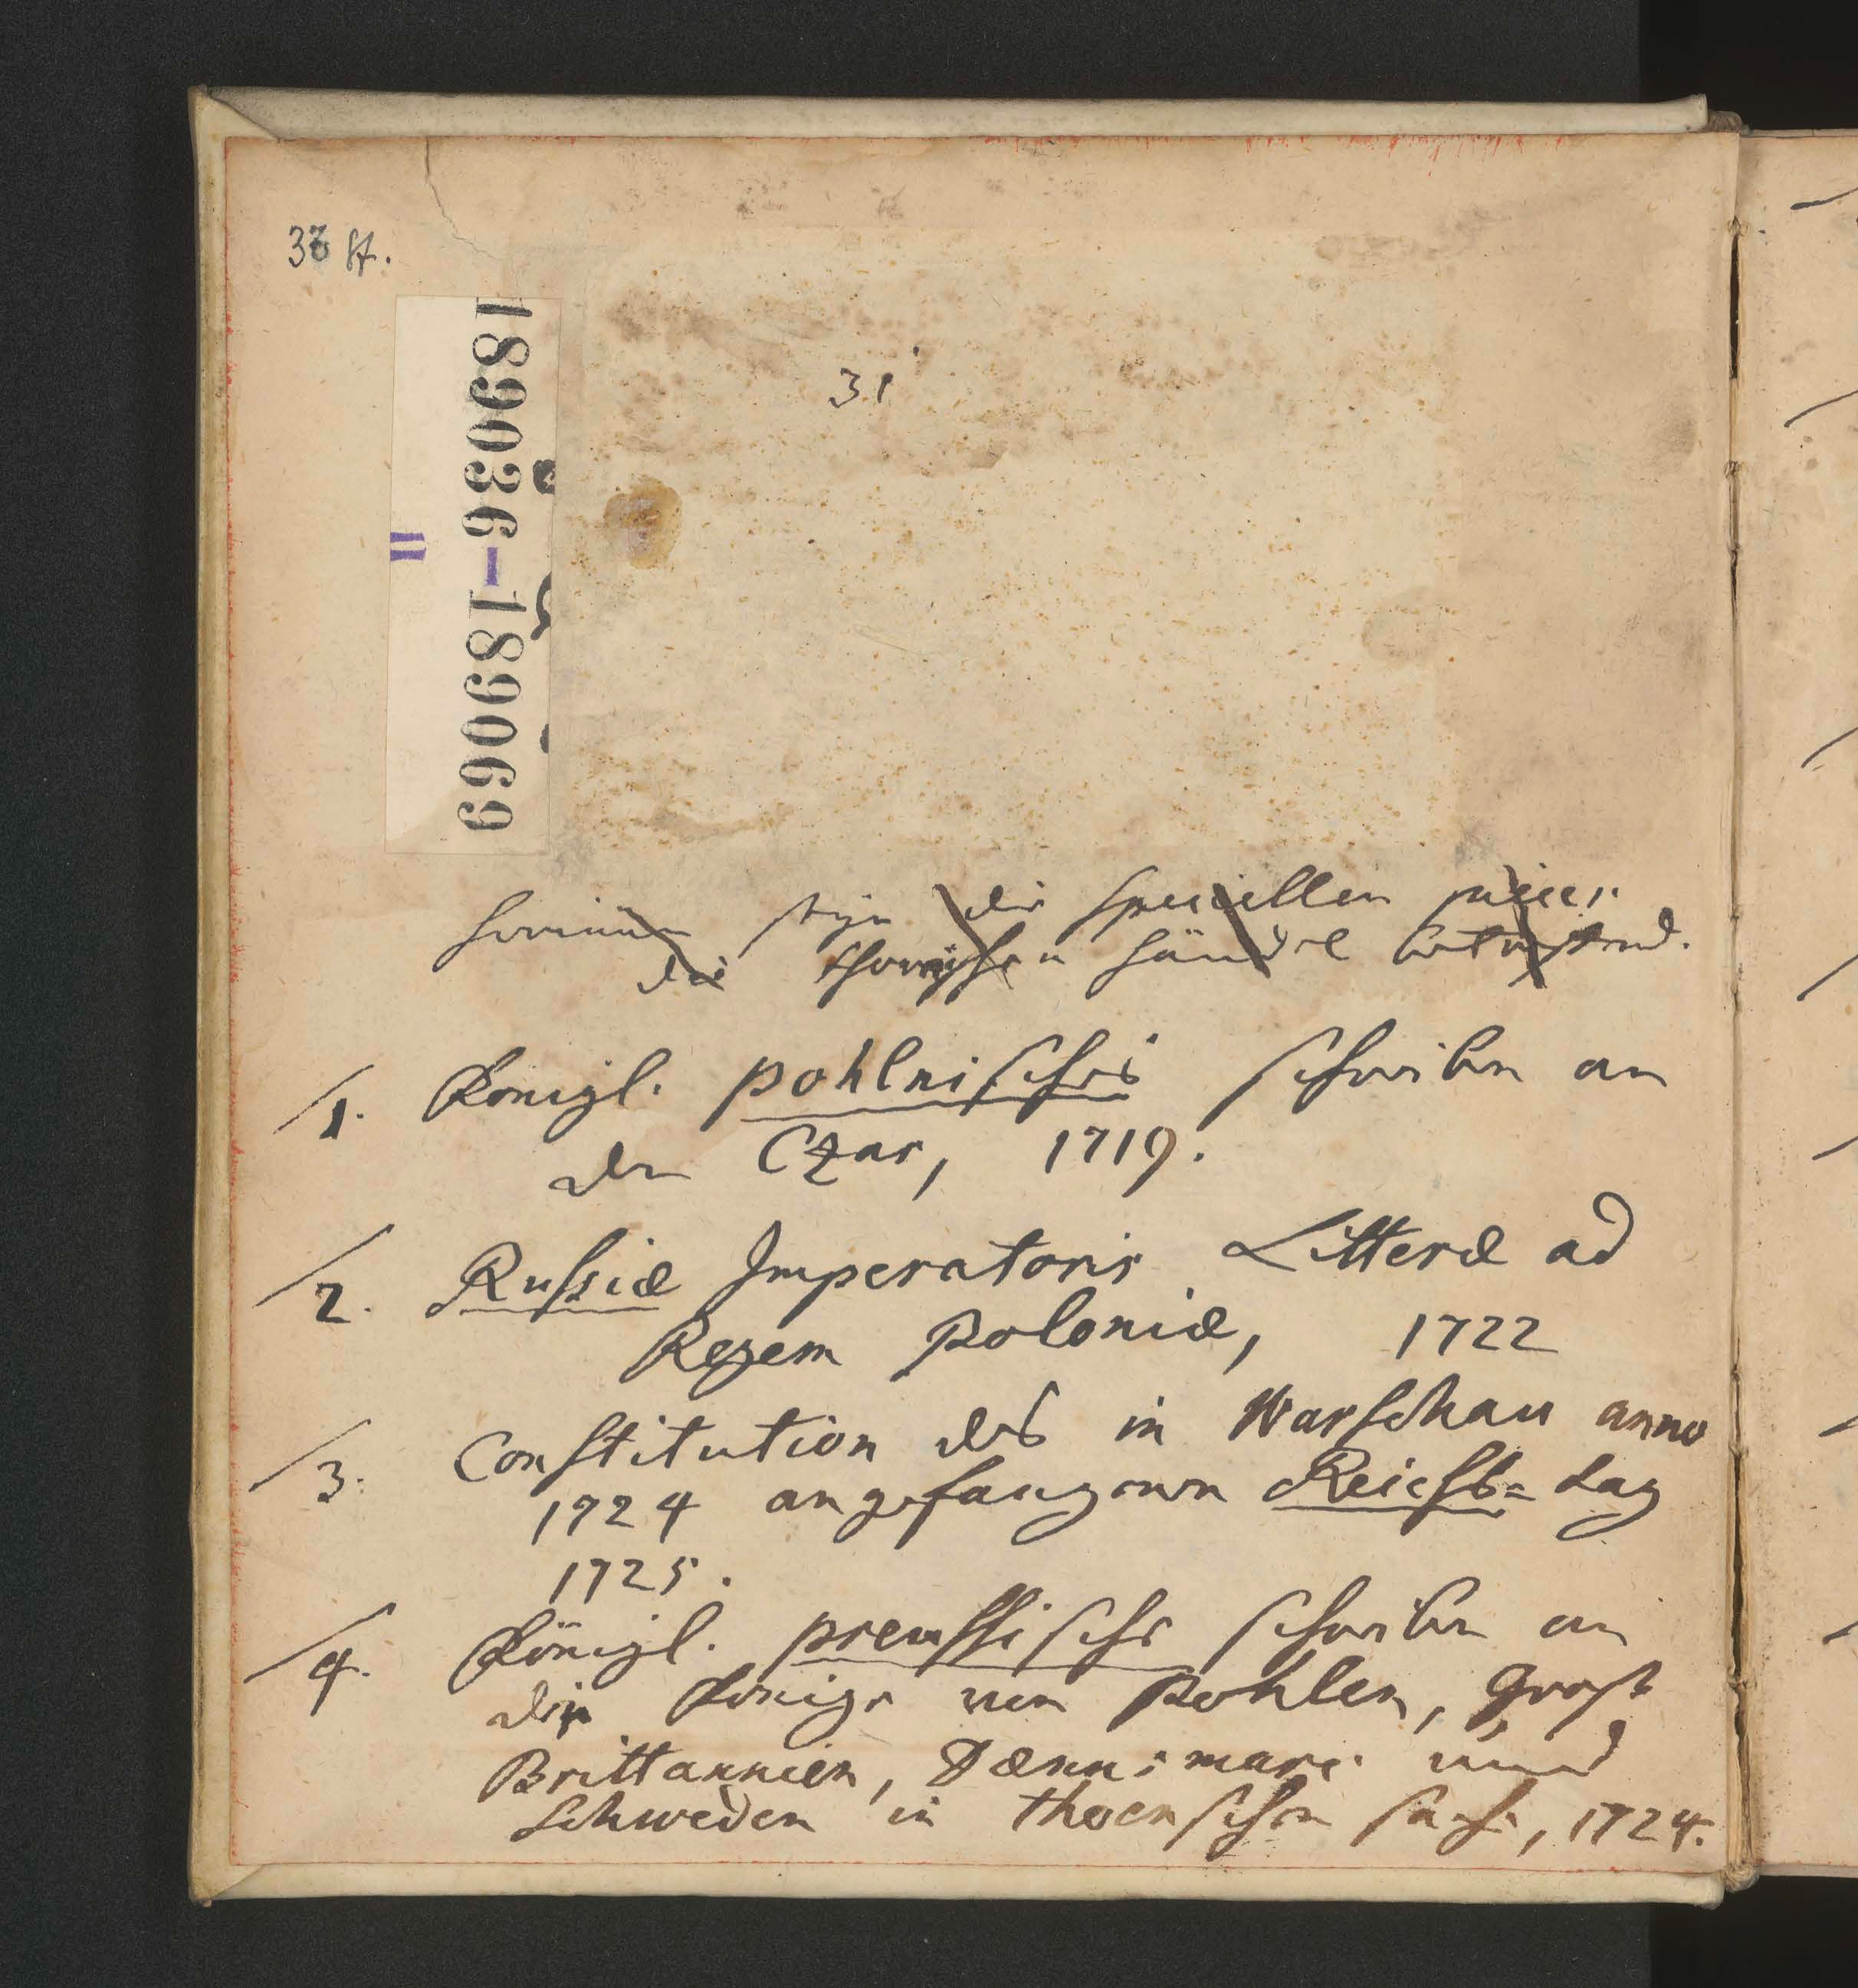 38 St.
189036–189069
II
31
die speciellen
die thornischen händel
1. Königl. pohlnisches schreiben an
den Czar, 1719.
2. Russiæ Imperatoris Litteræ ad
Regem Poloniæ, 1722
3. Constitution des in Warschau anno
1724 angefangenen Reichs=tag
1725.
4. Königl. preussische schreiben an
die Könige von Pohlen, Gross
Brittannien, Dænnemarc und
Schweden in thornschen sache, 1724.